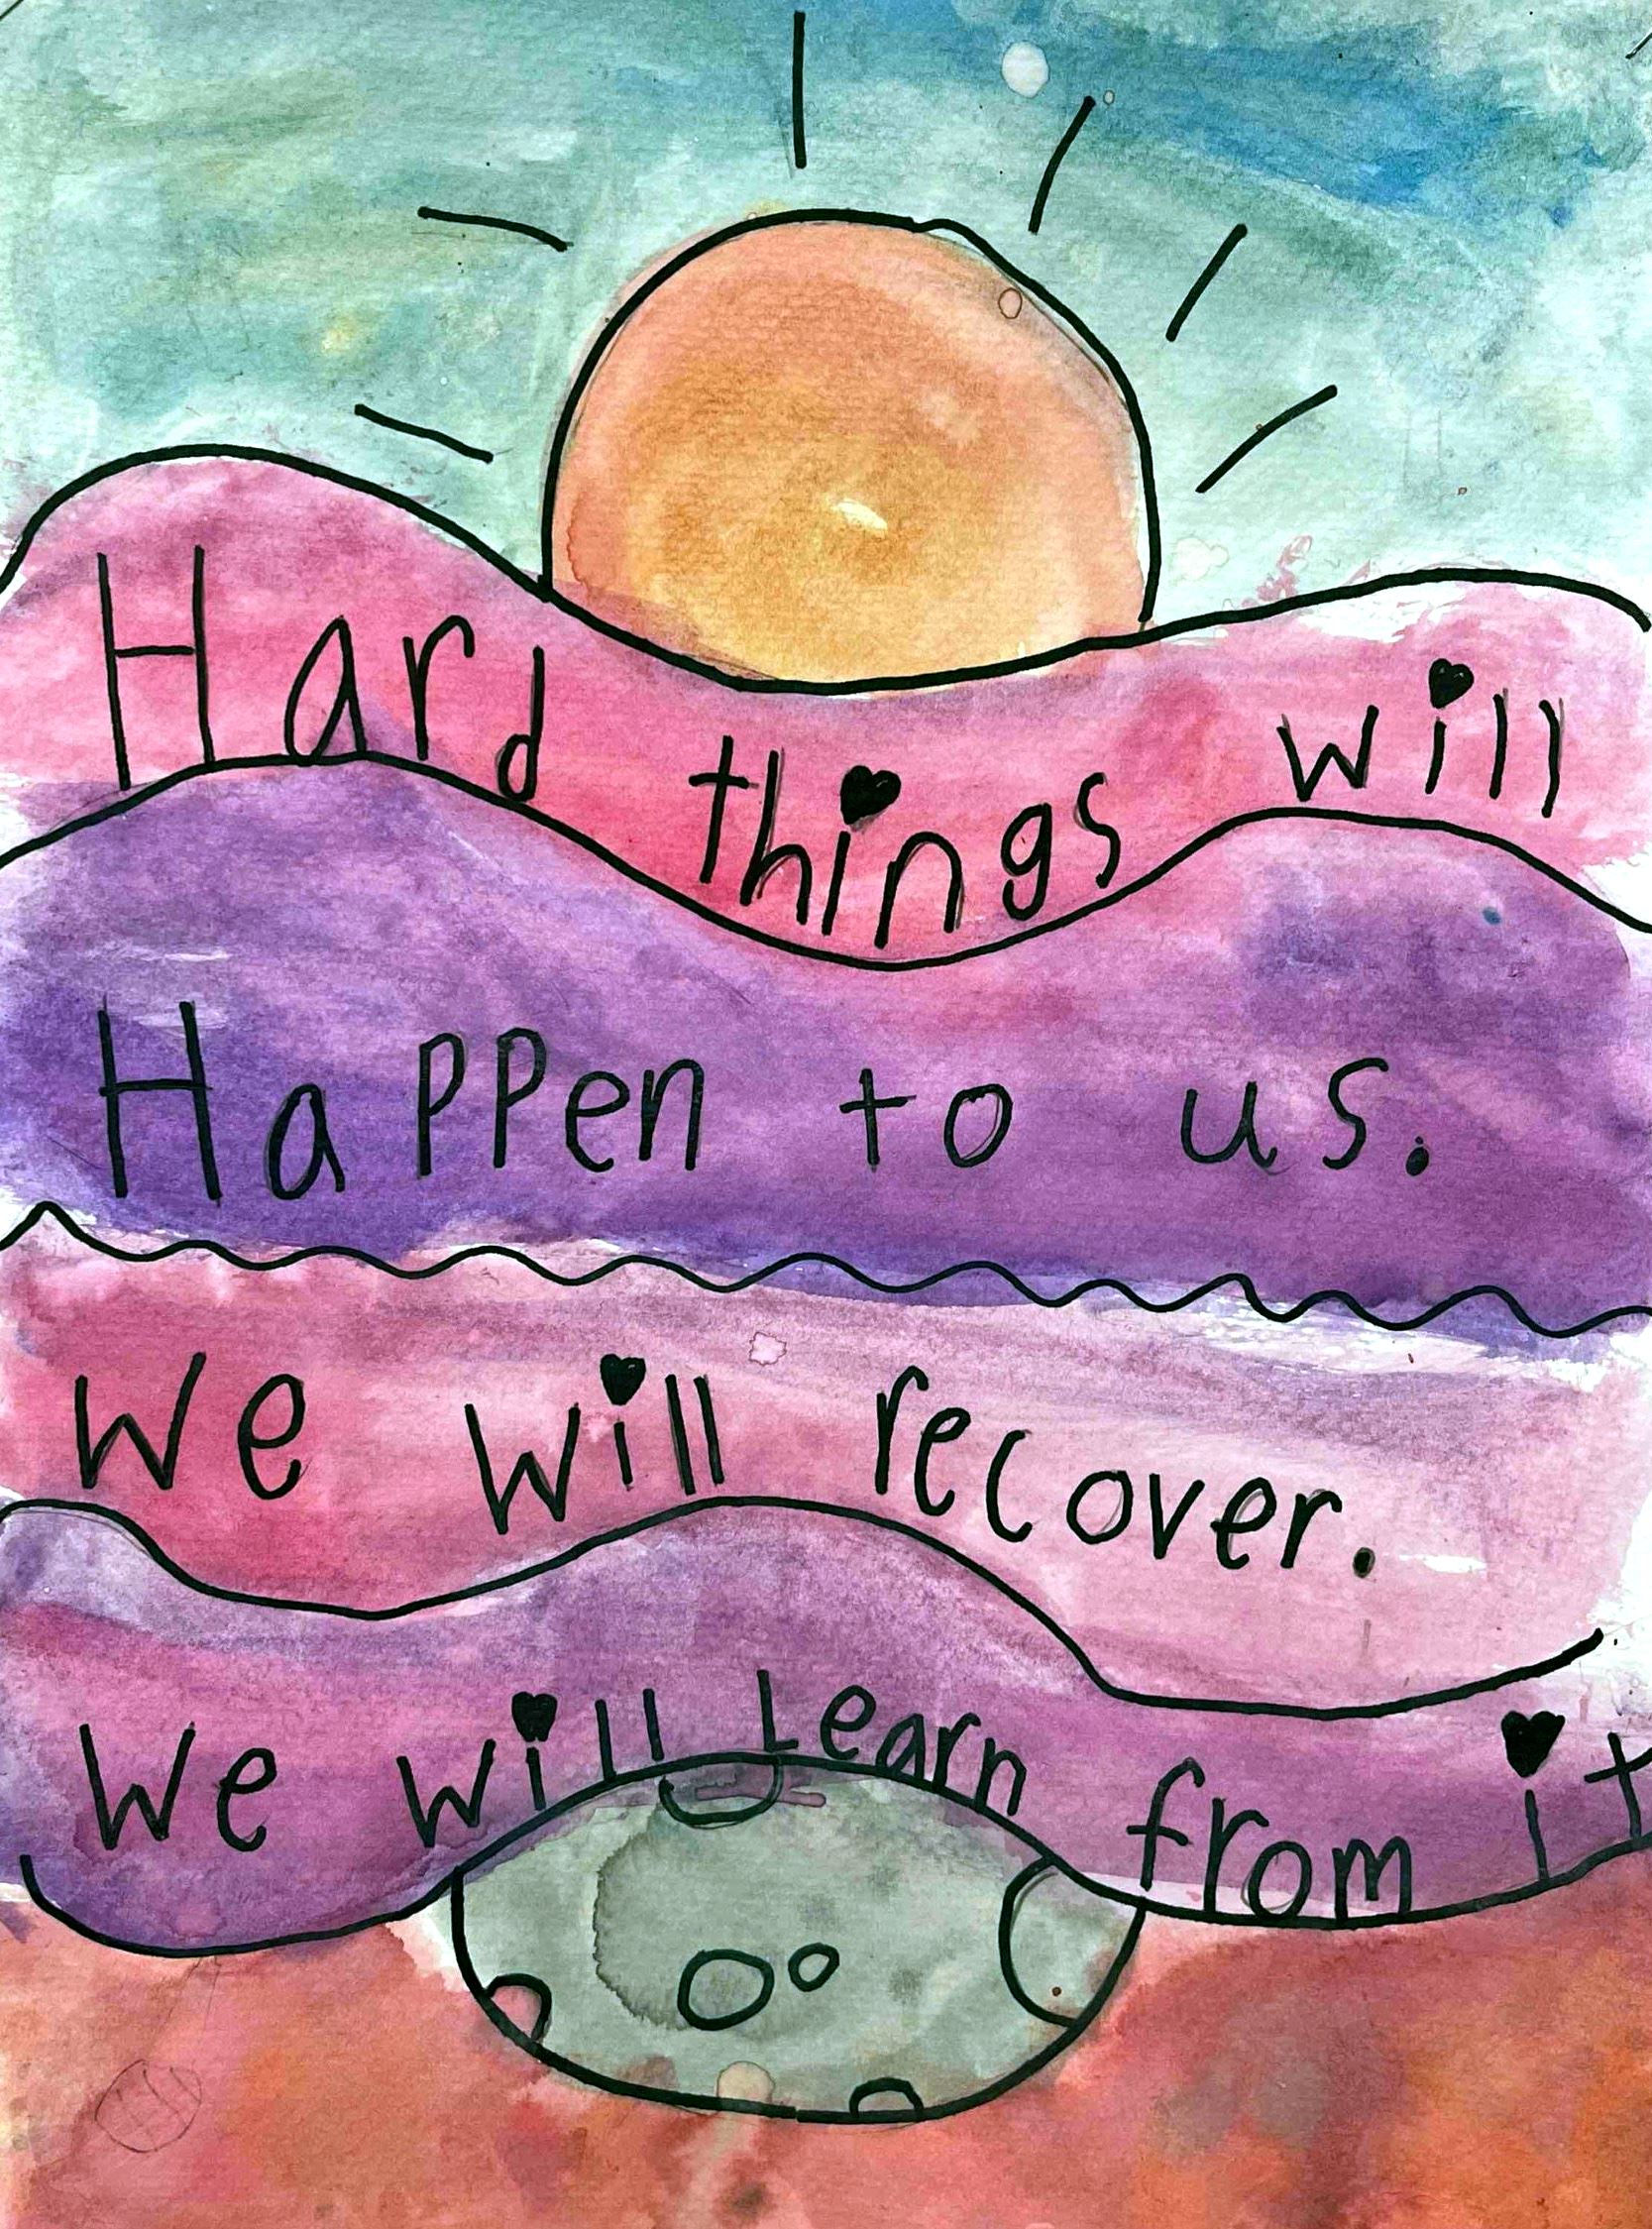 Hard things will
Happen to us.
We will recover.
We will Learn from it